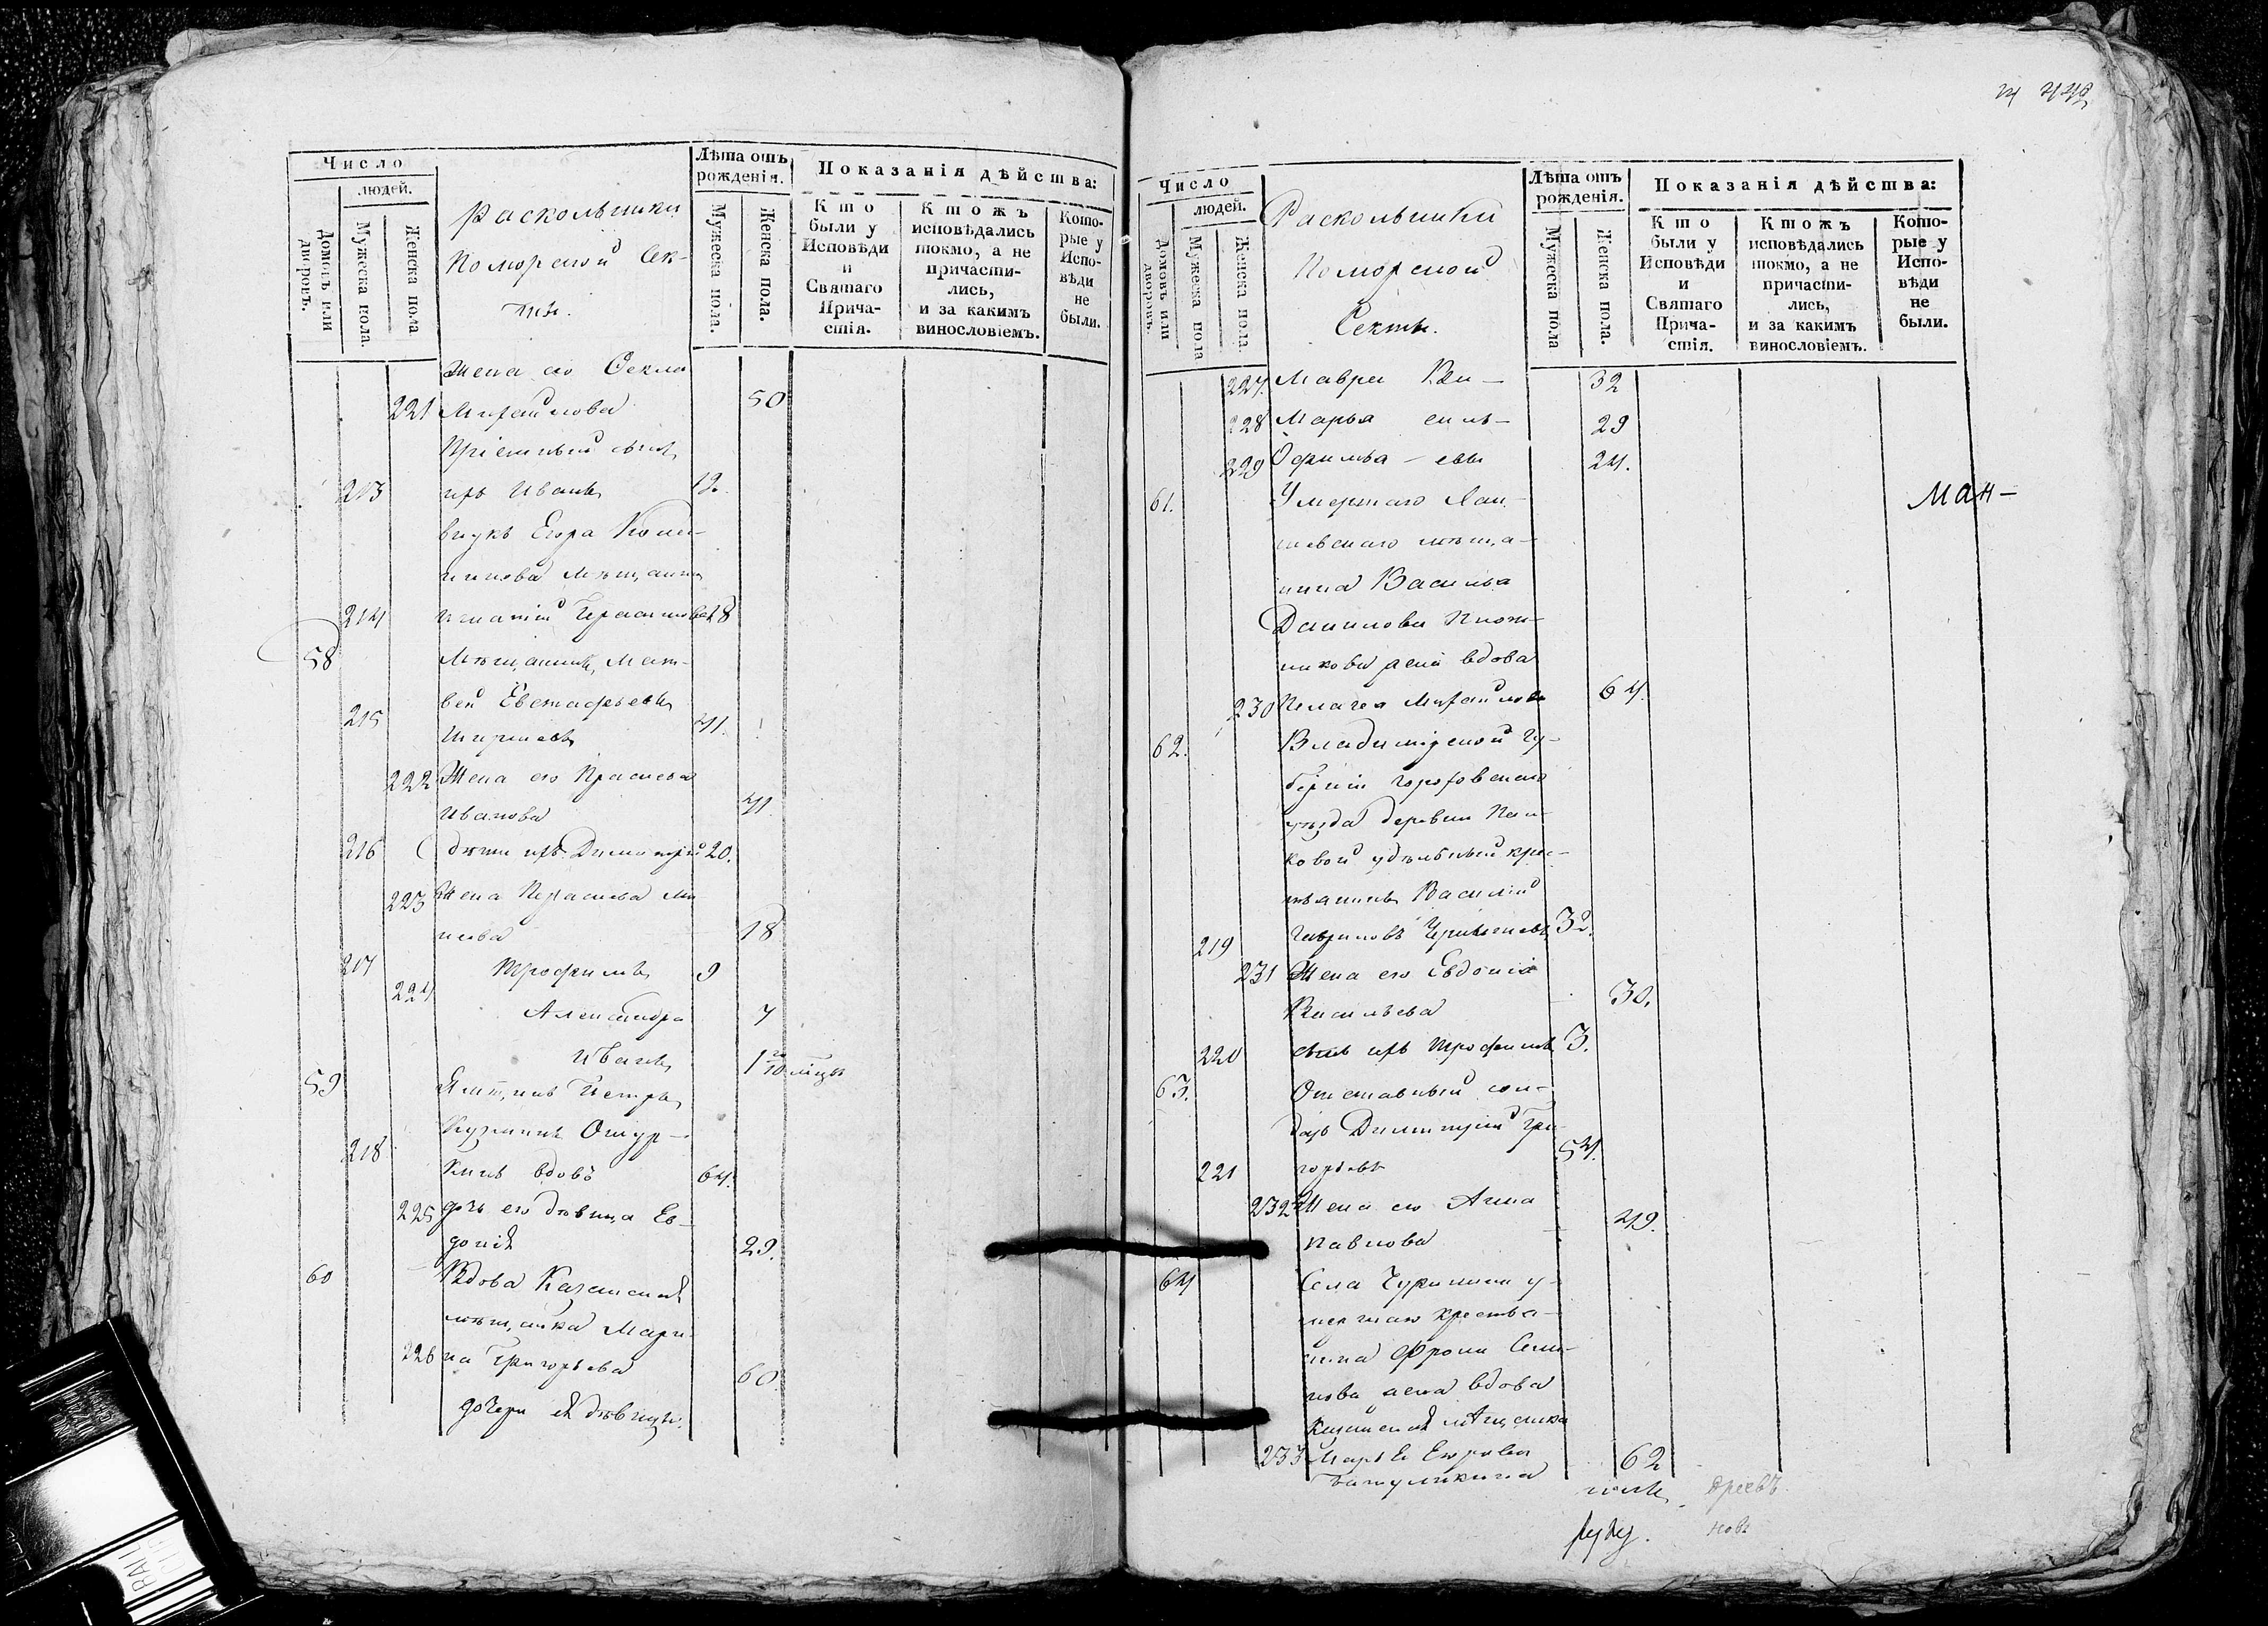 Число
людей.
Домовъ или дворовъ.
Мужеска пола.
Женска пола
Раскольники
Поморской Сек-
ты.
Лѣта отъ рожденія.
Мужеска пола.
Женска пола.
Показанія дѣйства:
Кто были у Исповѣди и Святаго Прича-стія.
Ктожъ исповѣдались токмо, а не причасти-лись, и за какимъ винословіемъ.
Кото-рые у Испо-вѣди не были.
Жена его Фекла
221 Михайлова 50
Пріемный сынъ
213 ихъ Иванъ 12.
внукъ Егора
мѣщанинъ
214 Игнатій Герасимовъ 18
58 Мѣщанинъ Мат-
вей Евстафьевъ
215 41.
222 Жена его Прасковья
Иванова 41
216 дѣти ихъ Димитрій 20.
223 Жена Прасковья
18
217 Трофимъ 9
224 Александра 7
Иванъ 1
59 Петръ
Кузминъ Огур-
218 кинъ вдовъ 64.
225 дочь его дѣвица Ев-
докія 29.
60 Вдова Казанская
мѣщанка Мари-
226 на Григорьева 60.
дочери ея дѣвицы.
Число
людей.
Домовъ или дворовъ.
Мужеска пола
Женска пола.
Раскольники
Поморской
Секты.
Лѣта отъ рожденія.
Мужеска пола
Женска пола.
Показанія дѣйства:
Кто были у Исповѣди и Святаго Прича-стія.
Ктожъ исповѣдались токмо, а не причасти-лись, и за какимъ винословіемъ.
Кото-рые у Испо-вѣди не были.
227. Мавра Ва- 32
228 Марья силь- 29
229 Офимья - евы 24.
61. Умершаго Лаи-
шевскаго мѣща-
нина Василья
Данилова Плот-
никова жена вдова
230 Пелагея Михайлова 64.
62. Владимірской Гу-
берніи Гороховскаго
уѣзда деревни
ковой удѣльный крес-
тьянинъ Василій
219 Гавриловъ 32.
231 Жена его Евдокія
Васильева 30.
220 сынъ ихъ Трофимъ 3.
63. Отставный сол-
датъ Димитрій Гри-
221 горьевъ 54.
232 Жена его Анна
Павлова 49.
64 Села Чурилина у-
мершаго крестья-
нина Семи-
нова жена вдова
Казанская мѣщанка
233 Марья Егорова 62